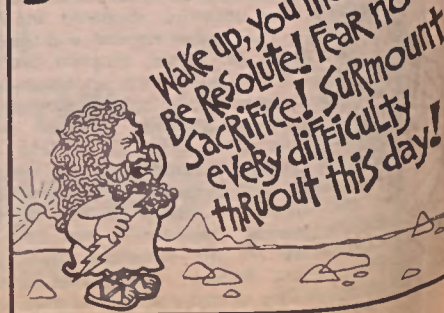 Wake up, you
Be Resolute! Fear no
Sacrifice! Surmount
every difficulty
thruout this day!